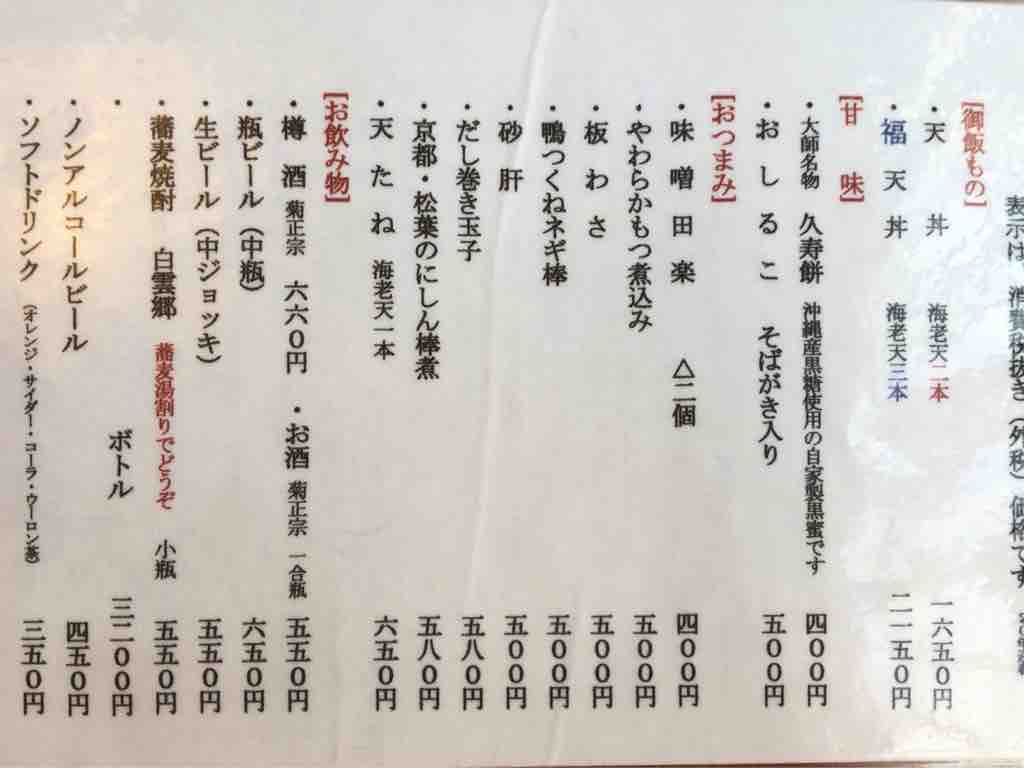 表示は、消費税抜き(外税)価格です
【御飯もの】
・天丼 海老天二本 一六五〇円
・福天丼 海老天三本 二一五〇円
【甘味】
・大師名物 久寿餅 沖縄産黒糖使用の自家製黒蜜です 四〇〇円
・おしるこ そばがき入り 五〇〇円
【おつまみ】
・味噌田楽 △二個 四〇〇円
・やわらかもつ煮込み 五〇〇円
・板わさ 五〇〇円
・鴨つくねネギ棒 五〇〇円
・砂肝 五〇〇円
・だし巻き玉子 五八〇円
・京都・松葉のにしん棒煮 五八〇円
・天たね 海老天一本 六五〇円
【お飲み物】
・樽酒 菊正宗 六六〇円 ・お酒 菊正宗 一合瓶 五五〇円
・瓶ビール(中瓶) 六五〇円
・生ビール(中ジョッキ) 五五〇円
・蕎麦焼酎 白雲郷 蕎麦湯割りでどうぞ 小瓶 五五〇円
・ ボトル 三二〇〇円
・ノンアルコールビール 四五〇円
・ソフトドリンク (オレンジ・サイダー・コーラ・ウーロン茶) 三五〇円